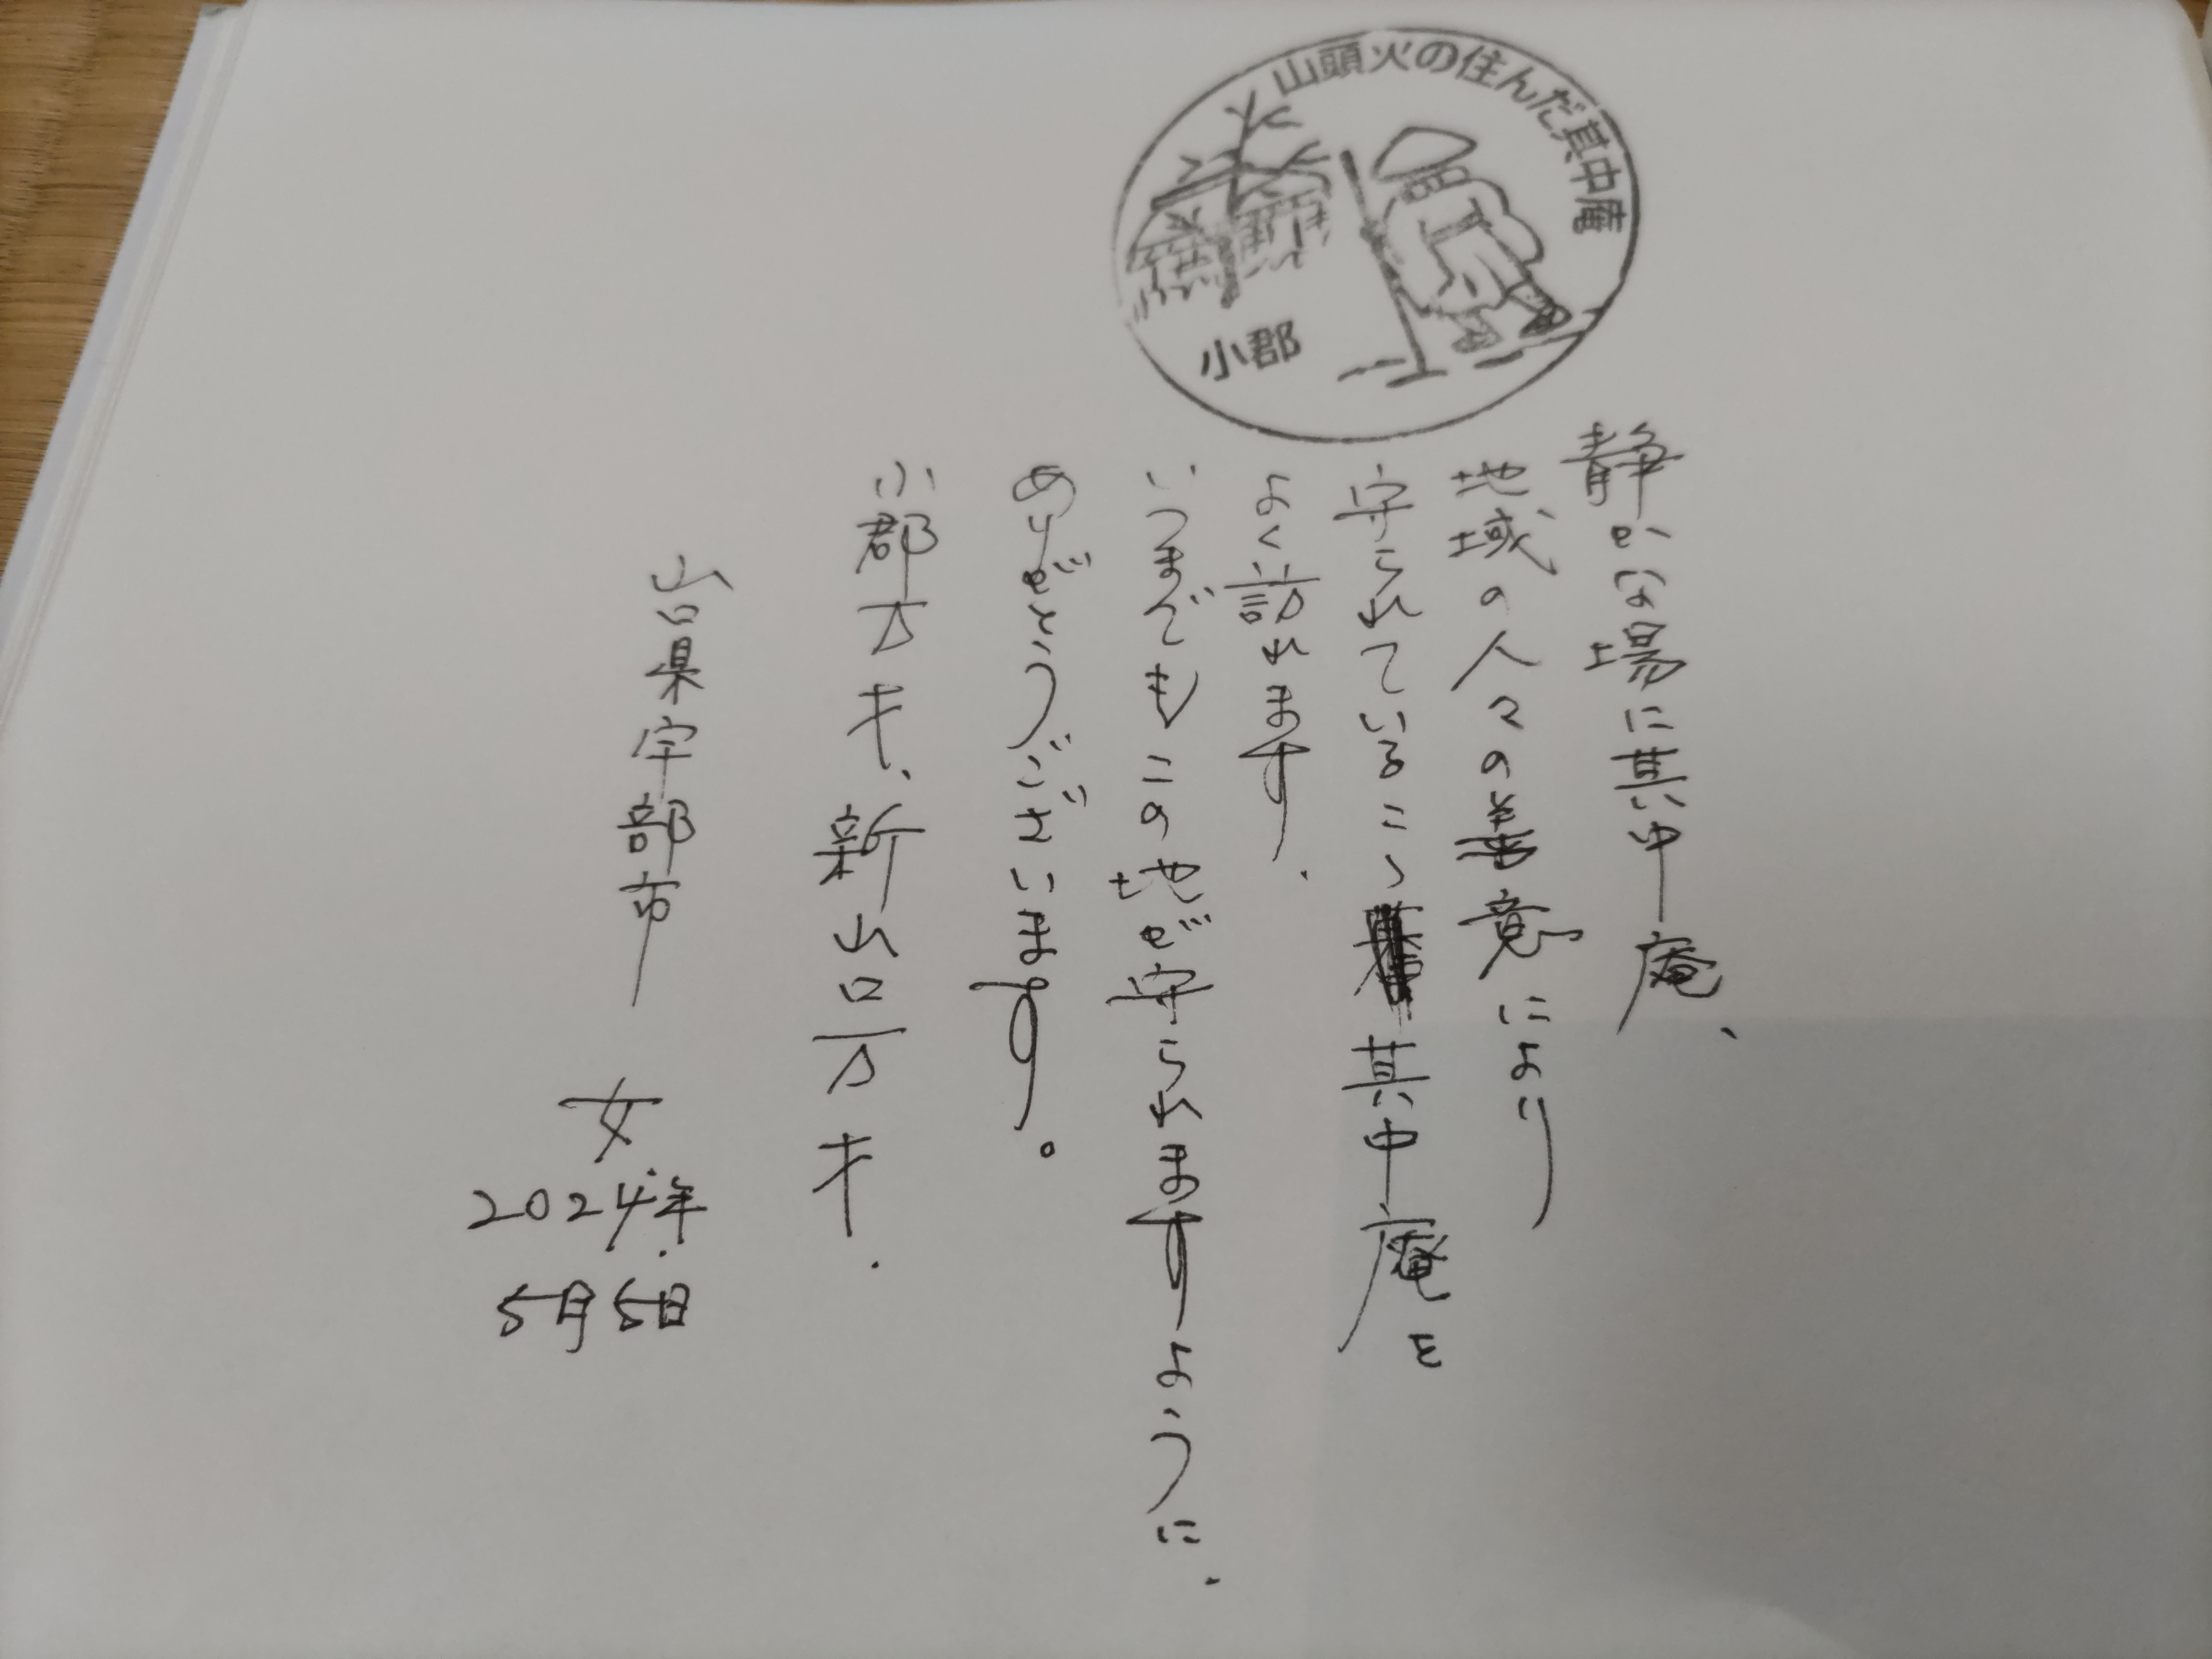 山頭火の住んだ其中庵
小郡
静かな場に其中庵、
地域の人々の善意により
守られているこの其中庵を
よく訪れます.
いつまでもこの地が守られますように.
ありがとうございます。
小郡万才、新山口万才.
山口県宇部市 女
2024年
5月5日